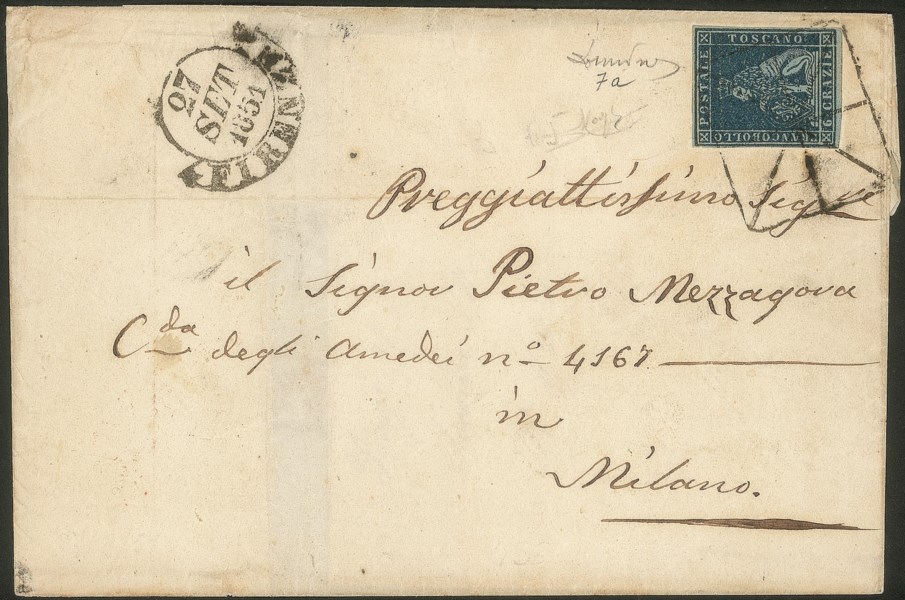 27
SET
1851
FIRENZE
7a
FRANCOBOLLO
POSTALE
TOSCANO
6 CRAZIE
Preggiattissimo Sig.re
il Signor Pietro Mezzagora
C.da degli Amedei nº 4167
in
Milano.